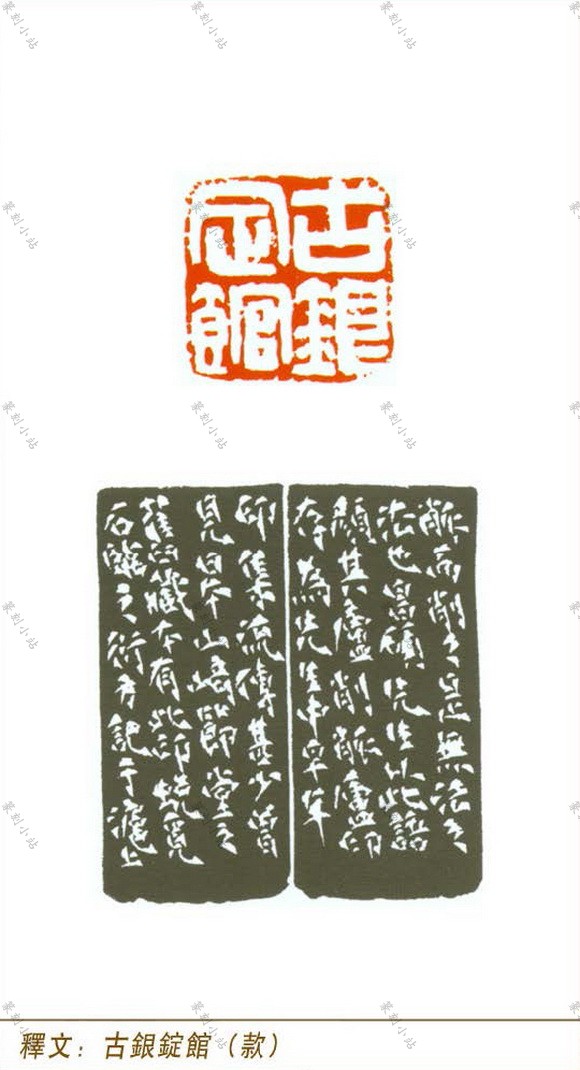 古銀
定館
觚而削之是無法之
法也昌碩先生以此語
顏其廬削觚廬印
存為先生中早年
印集流傳甚少嘗
見日本山崎節堂之
舊藏本有此印
石 之衍考記于滬上
釋文：古銀錠館（款）
篆刻小站